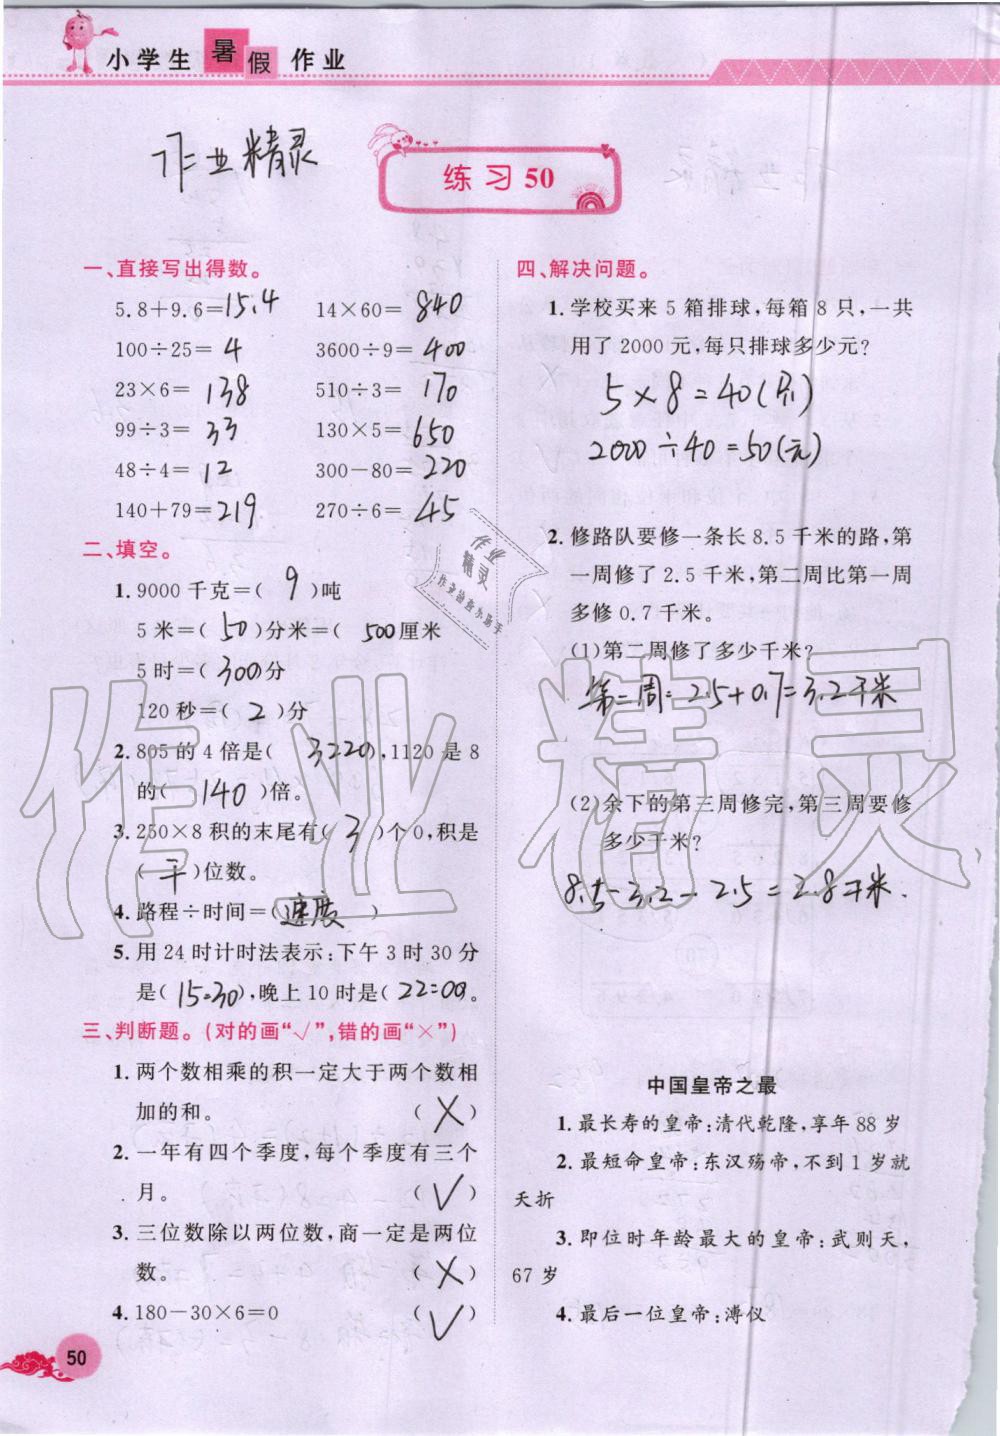 小学生 暑假 作业
作业精灵
练习 50
一、直接写出得数。
5.8+9.6=15.4 14×60=840
100÷25=4 3600÷9=400
23×6=138 510÷3=170
99÷3=33 130×5=650
48÷4=12 300-80=220
140+79=219 270÷6=45
二、填空。
1. 9000 千克=( 9 )吨
5 米=( 50 )分米=( 500 厘米
5 时=( 300 )分
120 秒=( 2 )分
2. 805 的 4 倍是( 3220 ),1120 是 8
的( 140 )倍。
3. 250×8 积的末尾有( 3 )个 0,积是
( 千 )位数。
4. 路程÷时间=( 速度 )
5. 用 24 时计时法表示:下午 3 时 30 分
是( 15:30 ),晚上 10 时是( 22:00 。
三、判断题。(对的画“√”,错的画“×”)
1. 两个数相乘的积一定大于两个数相
加的和。 ( X )
2. 一年有四个季度,每个季度有三个
月。 ( √ )
3. 三位数除以两位数,商一定是两位
数。 ( X )
4. 180-30×6=0 ( √ )
50
四、解决问题。
1. 学校买来 5 箱排球,每箱 8 只,一共
用了 2000 元,每只排球多少元?
5×8=40(只)
2000÷40=50(元)
2. 修路队要修一条长 8.5 千米的路,第
一周修了 2.5 千米,第二周比第一周
多修 0.7 千米。
(1)第二周修了多少千米?
第二周:2.5+0.7=3.2千米
(2)余下的第三周修完,第三周要修
多少千米?
8.5-3.2-2.5=2.8千米.
中国皇帝之最
1. 最长寿的皇帝:清代乾隆,享年 88 岁
2. 最短命皇帝:东汉殇帝,不到 1 岁就
夭折
3. 即位时年龄最大的皇帝:武则天,
67 岁
4. 最后一位皇帝:溥仪
作业
精灵
作业检查小助手
作业精灵